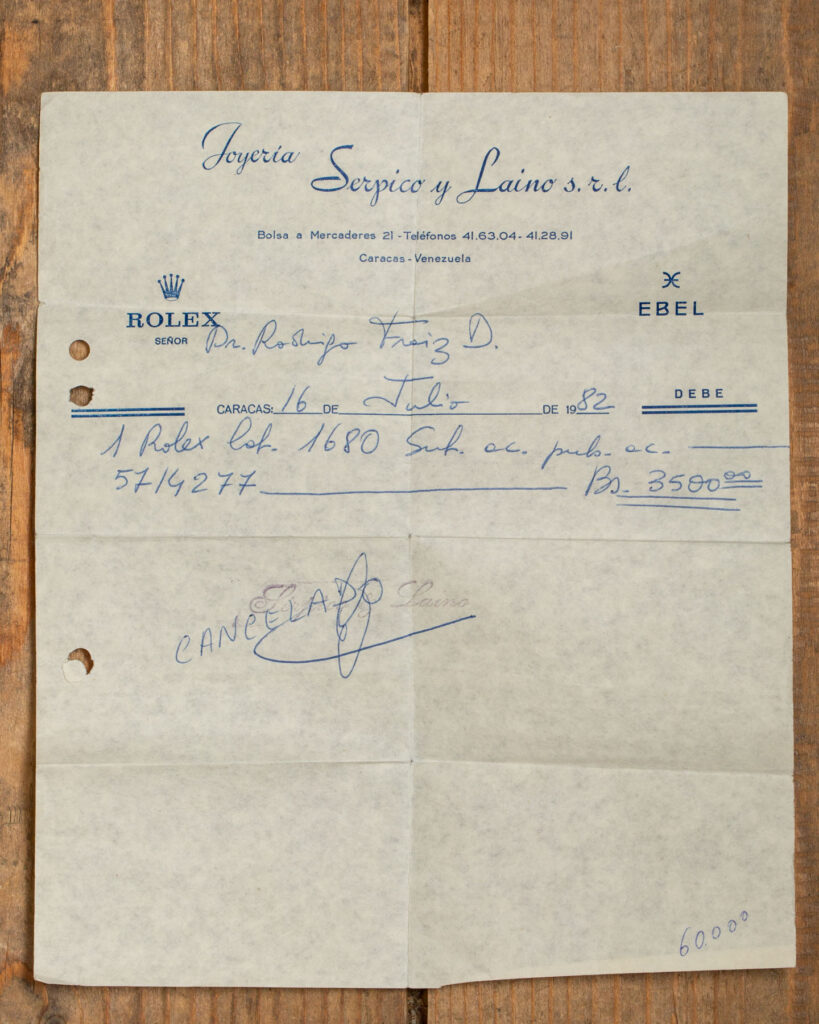 Joyería
Serpico y Laino s.r.l.
Bolsa a Mercaderes 21 - Teléfonos 41.63.04 - 41.28.91
Caracas - Venezuela
ROLEX
EBEL
SEÑOR Dr. Rodrigo D.
CARACAS: 16 DE Julio DE 1982
DEBE
1 Rolex 1680 Sub. ac. pub. ac.
5714277 Bs. 3500 00
Laino
CANCELADO